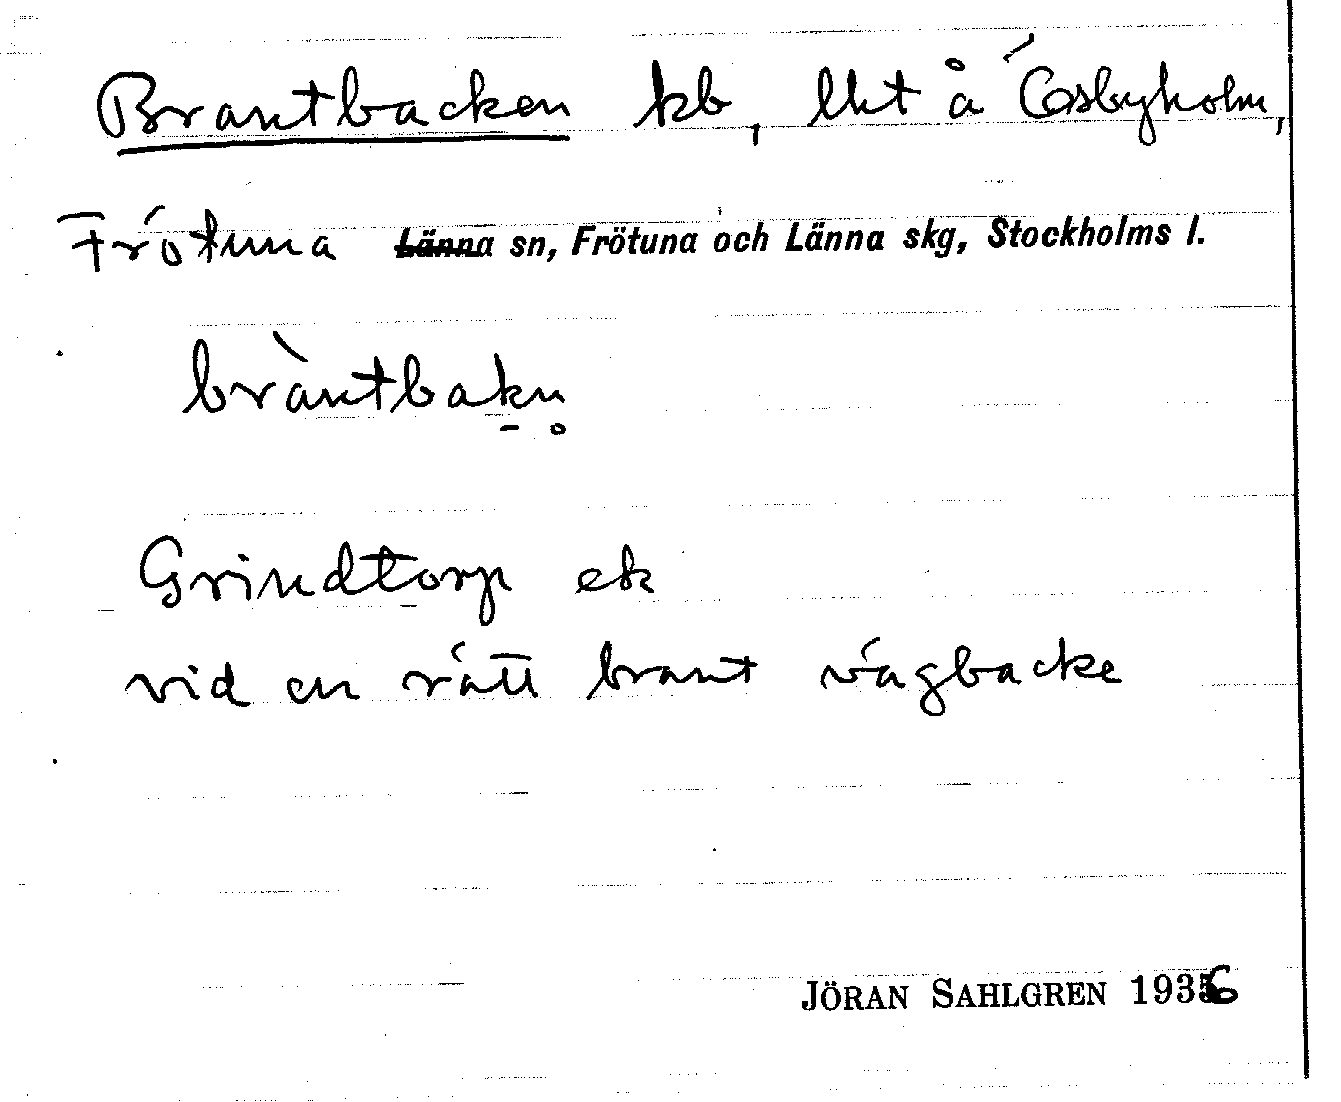 Brantbacken kb, lht å Ösbyholm,
Frötuna Länna sn, Frötuna och Länna skg, Stockholms l.
bràntbakn̥
Grindtorp ek
vid en rätt brant vägbacke
JÖRAN SAHLGREN 1936